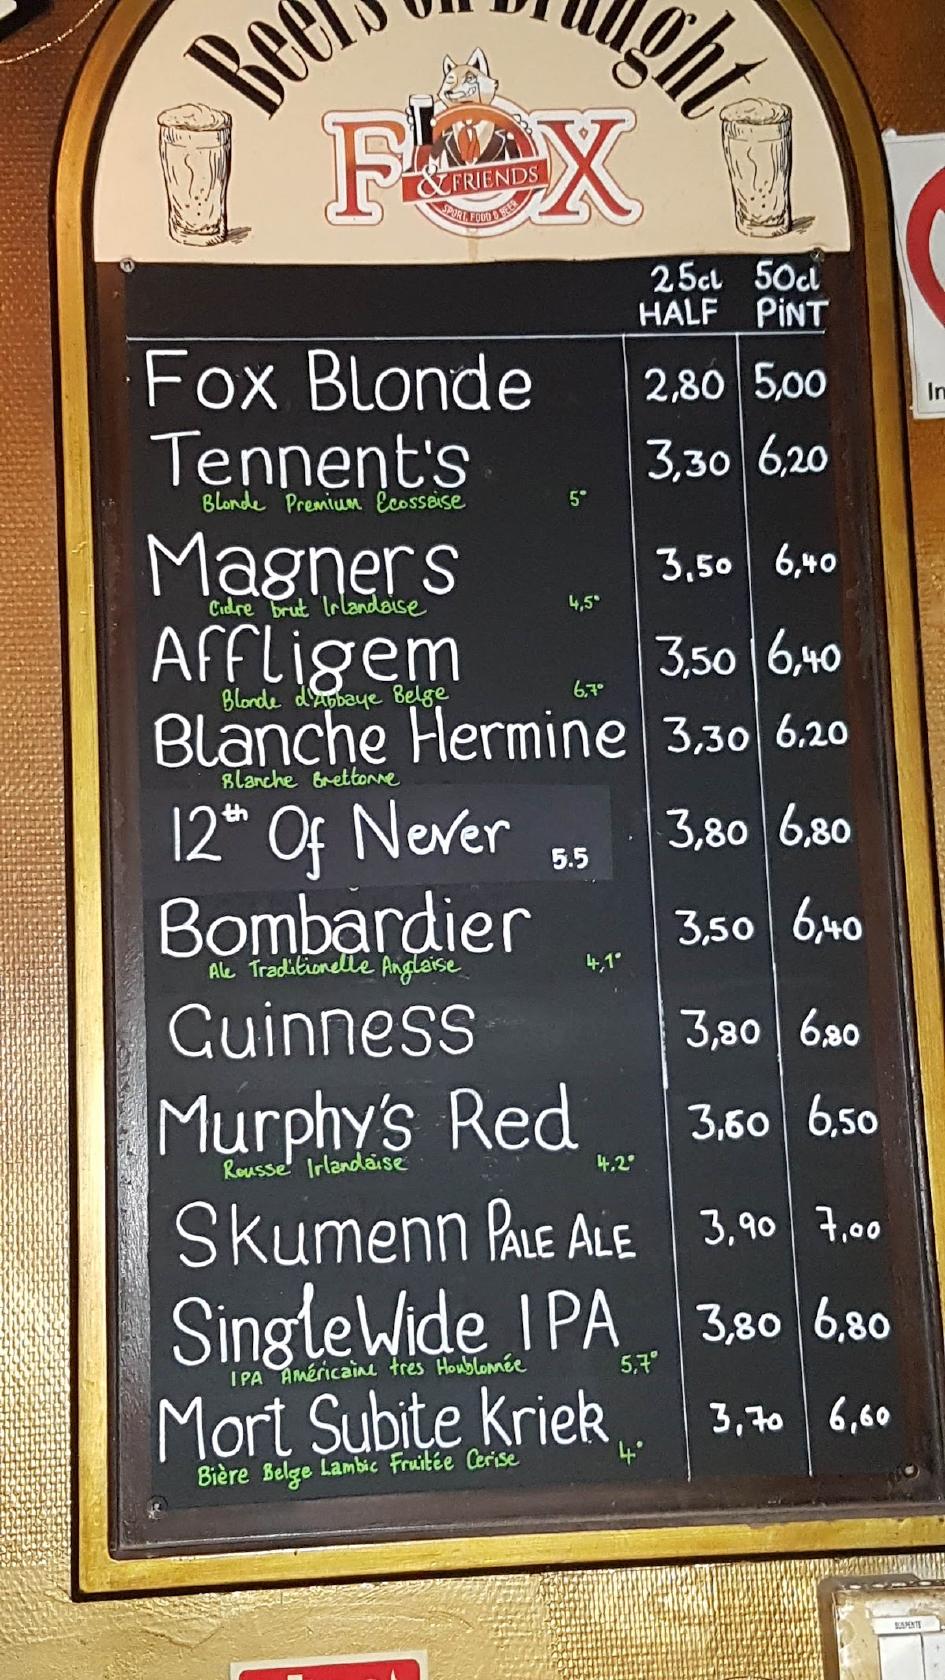 Beers on Draught
FOX
& FRIENDS
SPORT, FOOD & BEER
25cl 50cl
HALF PiNT
Fox Blonde 2,80 5,00
Tennent's 3,30 6,20
Blonde Premium Ecossaise 5°
Magners 3,50 6,40
Cidre brut Irlandaise 4,5°
Affligem 3,50 6,40
Blonde d'Abbaye Belge 6.7°
Blanche Hermine 3,30 6.20
Blanche Brettonne
12th Of Never 5.5 3,80 6,80
Bombardier 3,50 6,40
Ale Traditionelle Anglaise 4,1°
Guinness 3,80 6,80
Murphy's Red 3,60 6,50
Rousse Irlandaise 4.2°
Skumenn PALE ALE 3,90 7,00
SingleWide IPA 3,80 6,80
IPA Américaine tres Houblonnée 5,7°
Mort Subite Kriek 3,70 6,60
Bière Belge Lambic Fruitée Cerise 4°
In
SUSPENTE